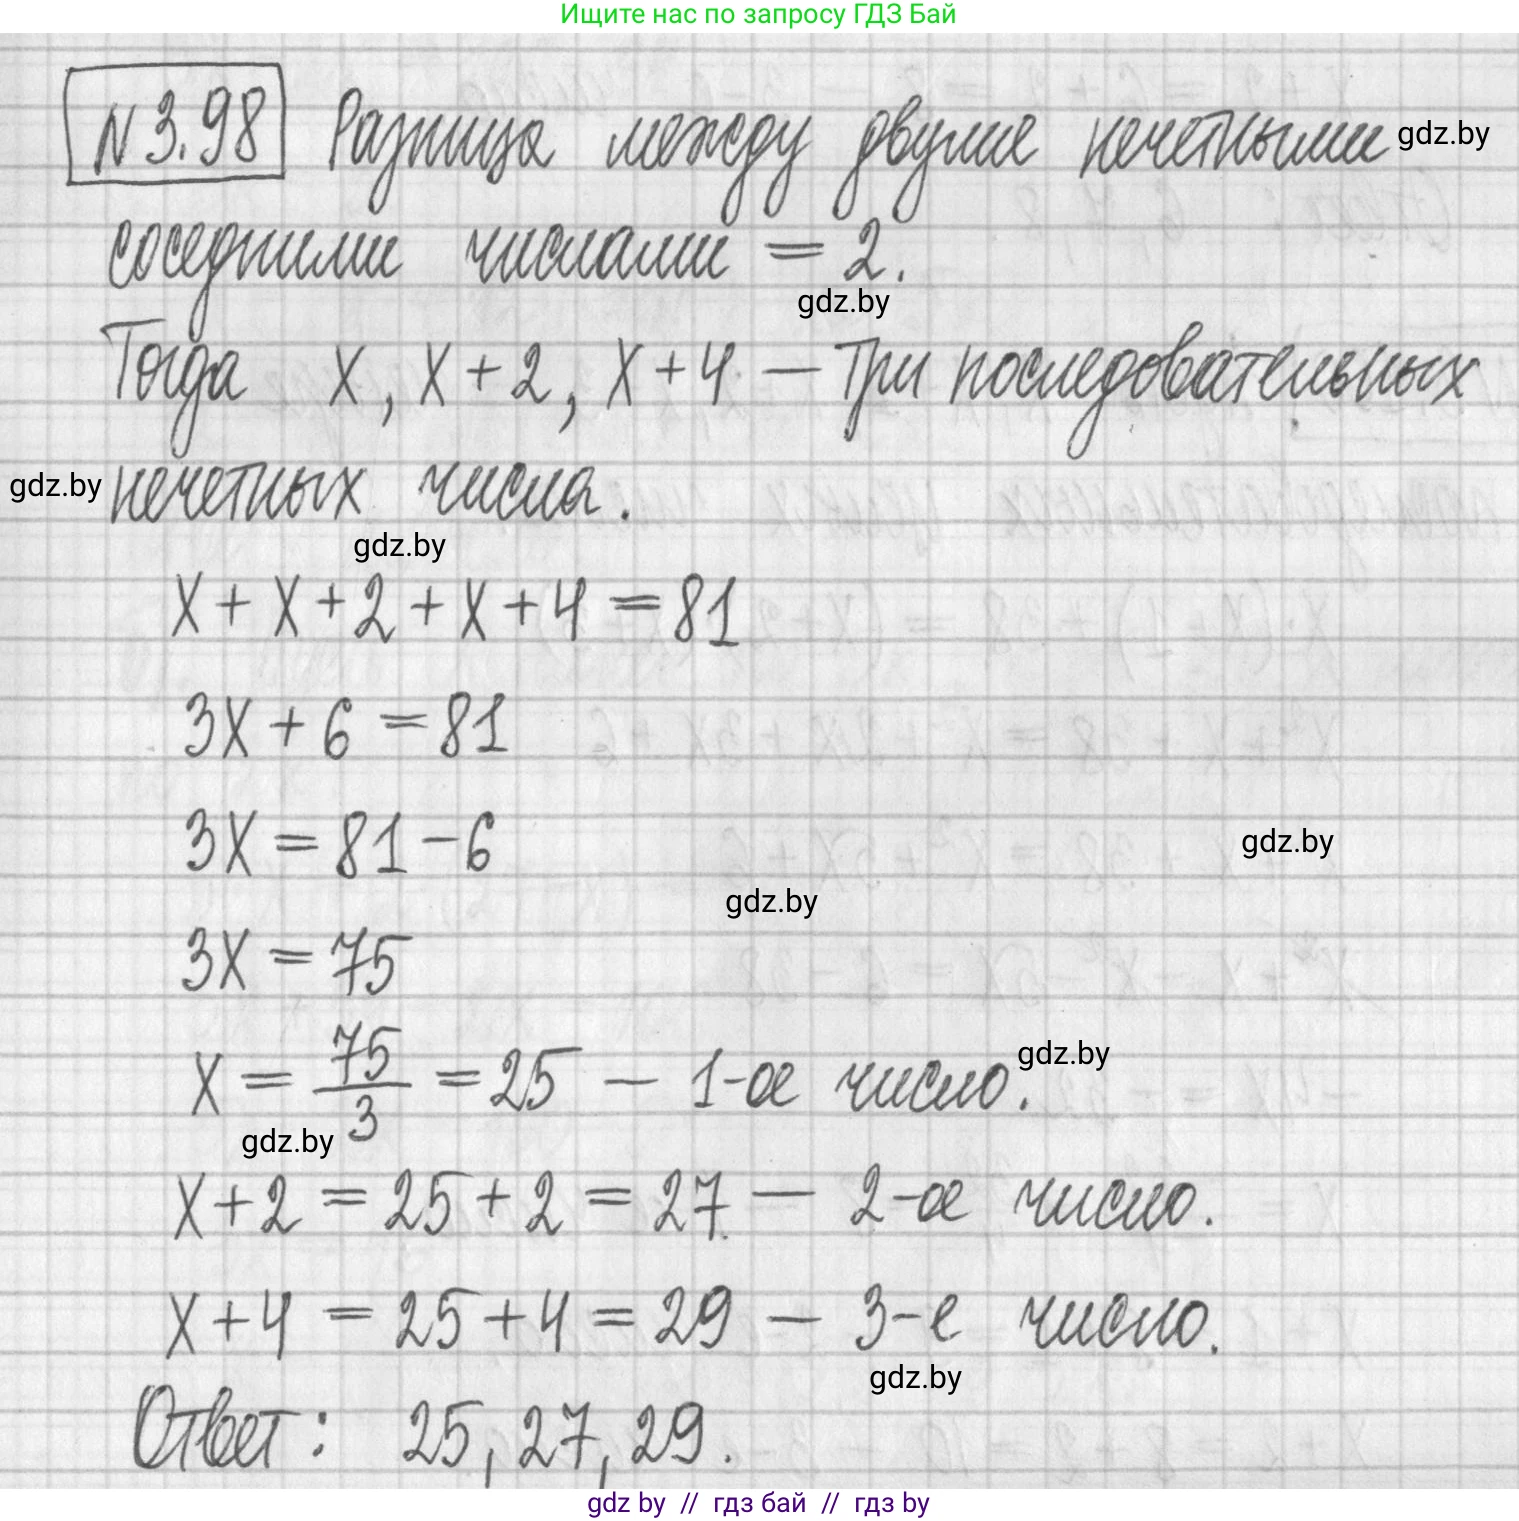 Ищите нас по запросу ГДЗ Бай
N 3.98 Разница между двумя нечетными gdz.by
соседними числами = 2.
gdz.by
Тогда x, x + 2, x + 4 — три последовательных
gdz.by нечетных числа.
gdz.by
x + x + 2 + x + 4 = 81
3x + 6 = 81
3x = 81 - 6
gdz.by
gdz.by
3x = 75
x = 75/3 = 25 — 1-ое число. gdz.by
gdz.by
x + 2 = 25 + 2 = 27 — 2-ое число.
x + 4 = 25 + 4 = 29 — 3-е число.
gdz.by
Ответ: 25, 27, 29.
gdz by // гдз бай // гдз by